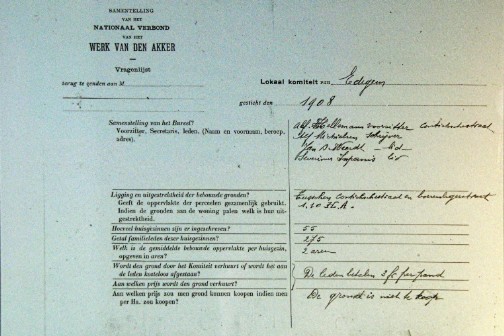 SAMENSTELLING
VAN HET
NATIONAAL VERBOND
VAN HET
WERK VAN DEN AKKER
Vragenlijst
terug te zenden aan M
Lokaal komiteit van Edegem
gesticht den 1908
Samenstelling van het Bureel?
Voorzitter, Secretaris, leden. (Naam en voornaam, beroep,
adres).
Alf. Hellemans voorzitter Contichstraat
schrijver
Jan B. lid
lid
Ligging en uitgestrektheid der bebouwde gronden?
Geeft de oppervlakte der perceelen gezamenlijk gebruikt.
Indien de gronden aan de woning palen welk is hun uit-
gestrektheid.
en
Hoeveel huisgezinnen zijn er ingeschreven?
55
Getal familieleden dezer huisgezinnen?
275
Welk is de gemiddelde bebouwde oppervlakte per huisgezin,
opgeven in aren?
2 aren
Wordt den grond door het Komiteit verhuurt of wordt het aan
de leden kosteloos afgestaan?
De leden betalen 2 fr per pand
Aan welken prijs wordt den grond verhuurt?
Aan welken prijs zou men grond kunnen koopen indien men
per Ha. zou koopen?
De grond is niet te koop